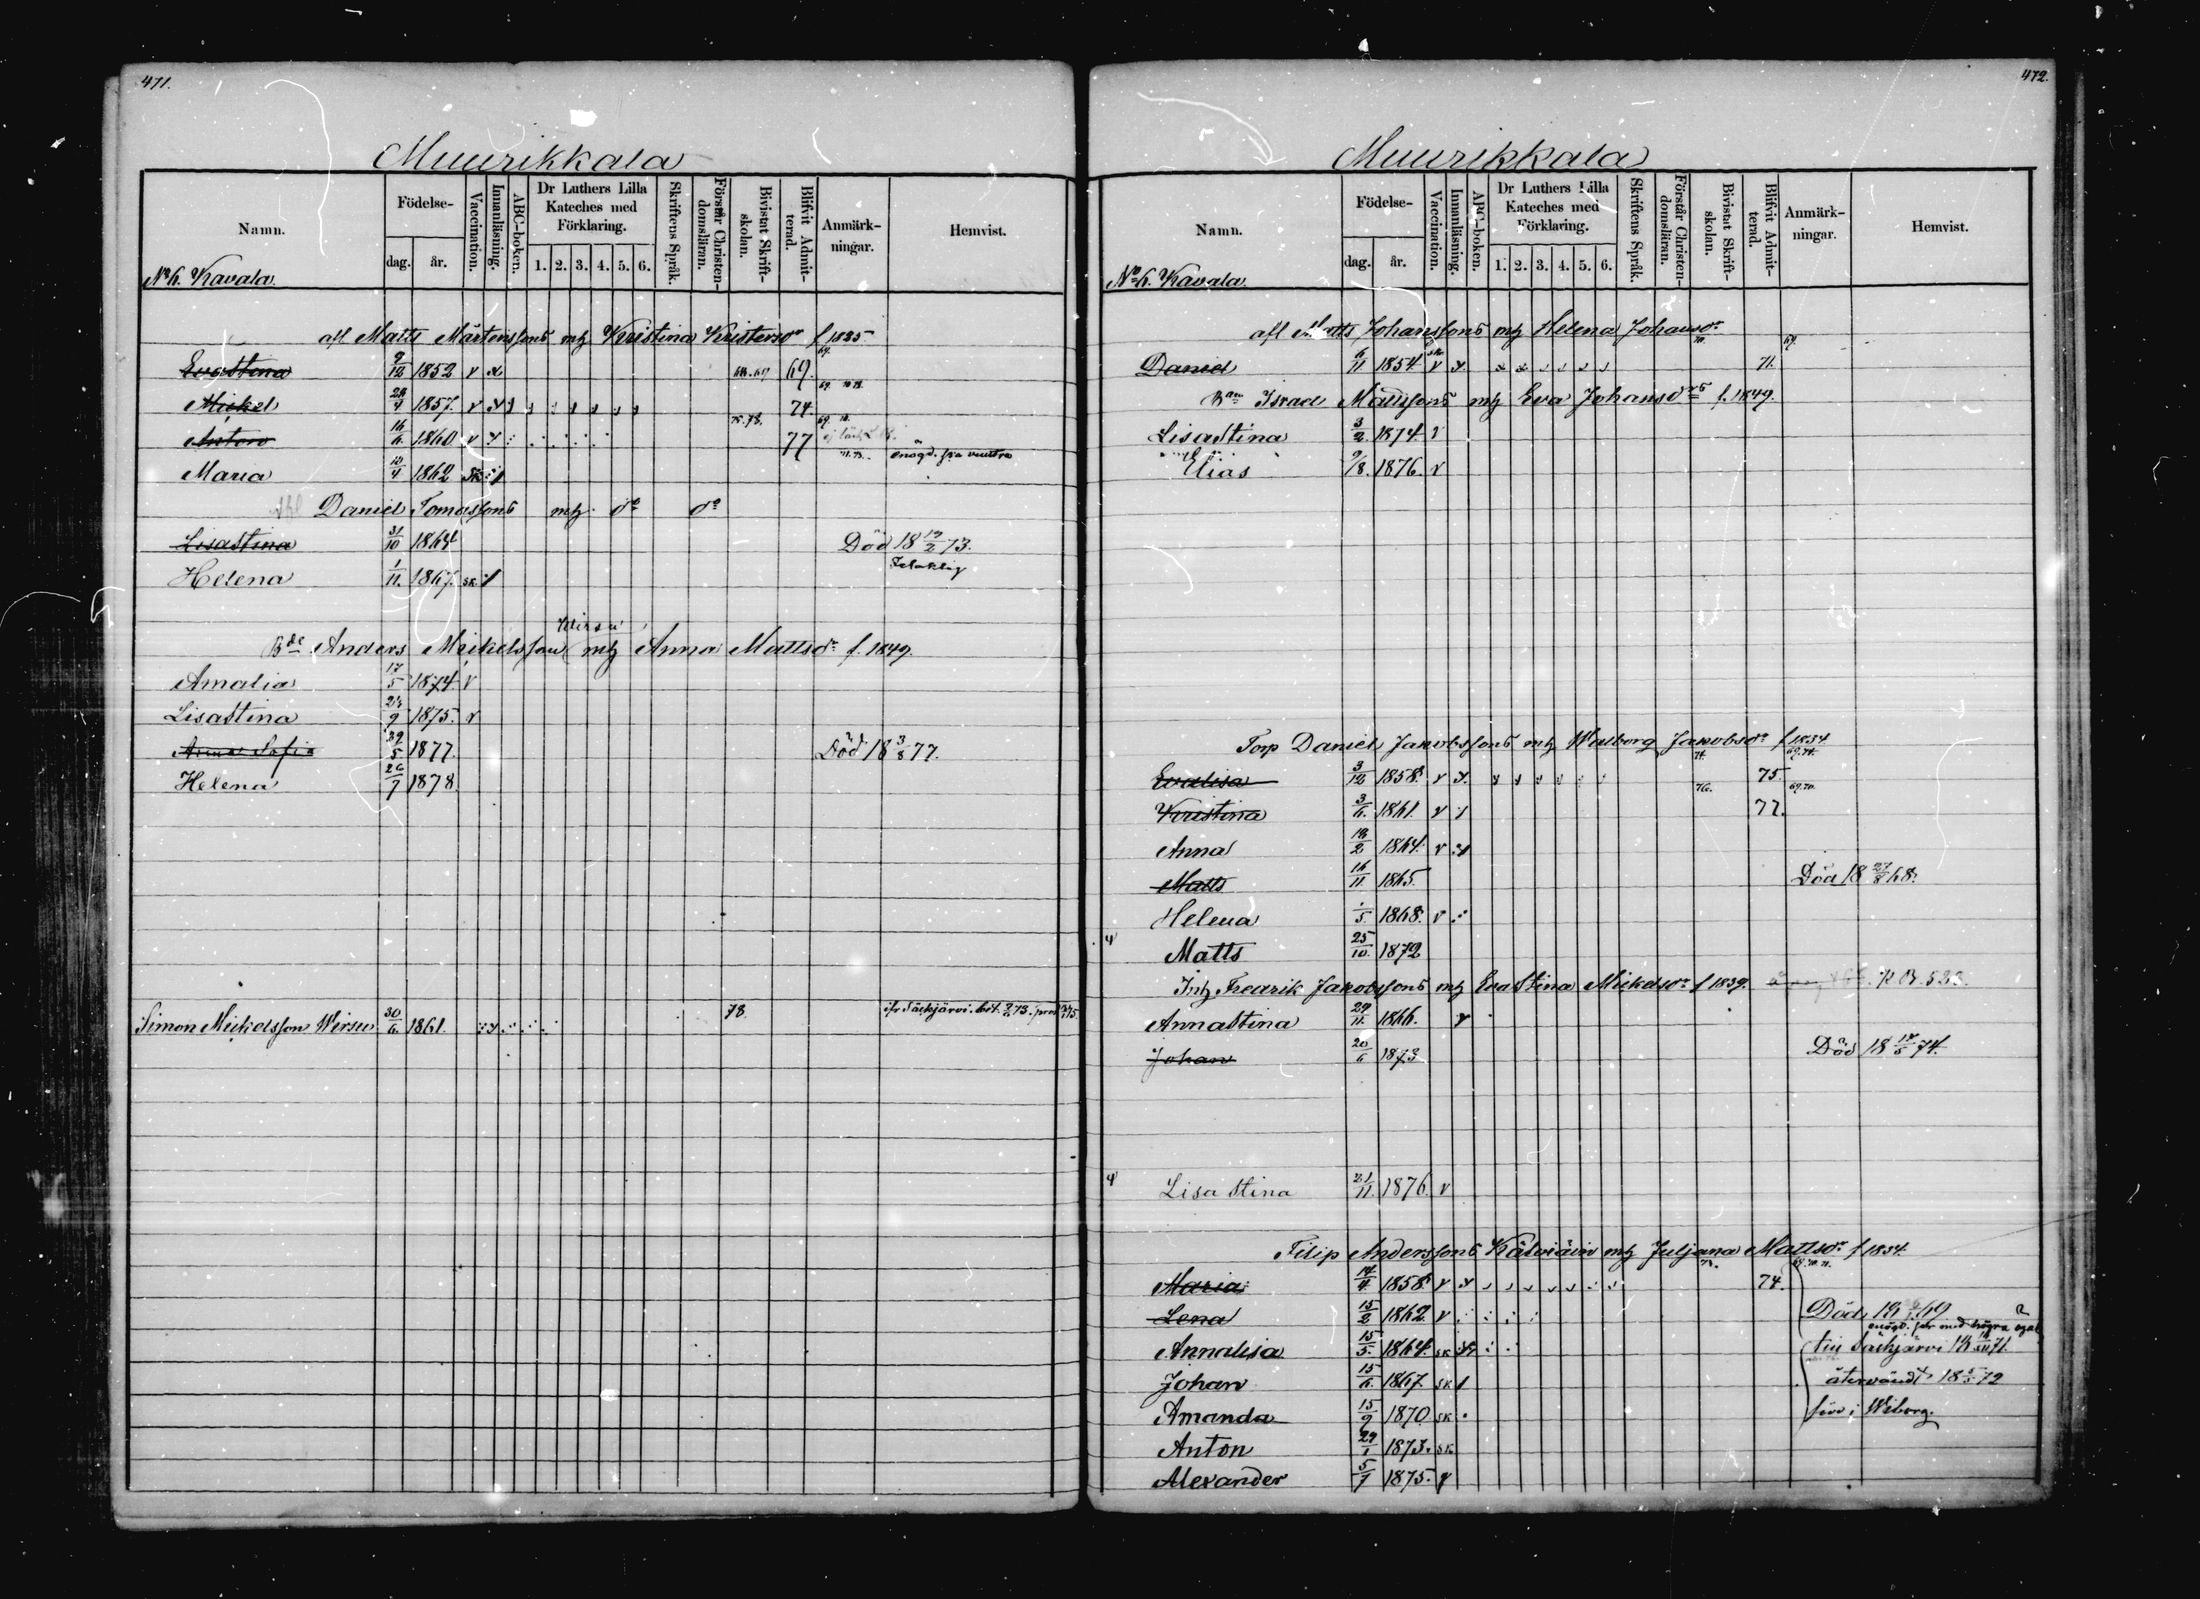 471.
Muurikkala
Namn. Födelse- dag. år. Vaccination. Innanläsning. ABC-boken. Dr Luthers Lilla Kateches med Förklaring. 1. 2. 3. 4. 5. 6. Skriftens Språk. Förstår Christen-domsläran. Bivistat Skrift-skolan. Blifvit Admit-terad. Anmärk-ningar. Hemvist.
N:o 6. Kavala.
afl Matts Mårtenssons mh Kristina Kristersdr f 1825
Evastina 9/12 1852 v 69. 69.
Mickel 24/4 1857. v 74.
Anton 16/6 1860 v 75.78. 77
Maria 12/4 1862 sk enögd.
Daniel Tomassons mh do do
Lisastina 31/10 1864 Död 18 19/2 73.
Helena 1/11. 1867. sk
Bde Anders Mickelsson Wirsu mh Anna Mattsdr f. 1849.
Amalia 17/5 1874. v
Lisastina 24/9 1875. v
Anna Sofia 29/5 1877. Död 18 3/8 77.
Helena 26/7 1878.
Simon Mickelsson Wirsu 30/6 1861. 78. Säckjärvi
472.
Muurikkala
Namn. Födelse- dag. år. Vaccination. Innanläsning. ABC-boken. Dr Luthers Lilla Kateches med Förklaring. 1. 2. 3. 4. 5. 6. Skriftens Språk. Förstår Christen-domsläran. Bivistat Skrift-skolan. Blifvit Admit-terad. Anmärk-ningar. Hemvist.
N:o 6. Kavala.
afl Matts Johanssons mh Helena Johansdr
Daniel 6/11 1854 v 71.
Israel Mattssons mh Eva Johansdrs f. 1849.
Lisastina 3/2. 1874. v
Elias 9/8. 1876. v
Torp Daniel Jakobssons mh Walborg Jakobsdr f 1834
Evalisa 3/12 1858. v 74. 75. 69.74.
Kristina 3/6. 1861. v 76. 77. 69.70.
Anna 18/2 1864. v
Matts 16/11 1865. Död 18 27/8 68.
Helena 1/5. 1868. v
Matts 25/10. 1872
Inh Fredrik Jakobssons mh Eva Stina Mickelsdr f 1839. K.B. 533.
Annastina 29/11. 1866. v
Johan 20/6 1873 Död 18 17/5 74.
Lisa Stina 21/11. 1876. v
Filip Anderssons mh Juljana Mattsdr f 1834.
Maria 14/4 1858. v 73. 74. 69.70.71.
Lena 15/2 1862. v Död 69
Annalisa 15/5 1864. sk till Säckjärvi 71.
Johan 15/6. 1867. sk återvändt 18 72
Amanda 15/9 1870. sk i Wiborg.
Anton 29/1 1873. sk
Alexander 5/7 1875. v